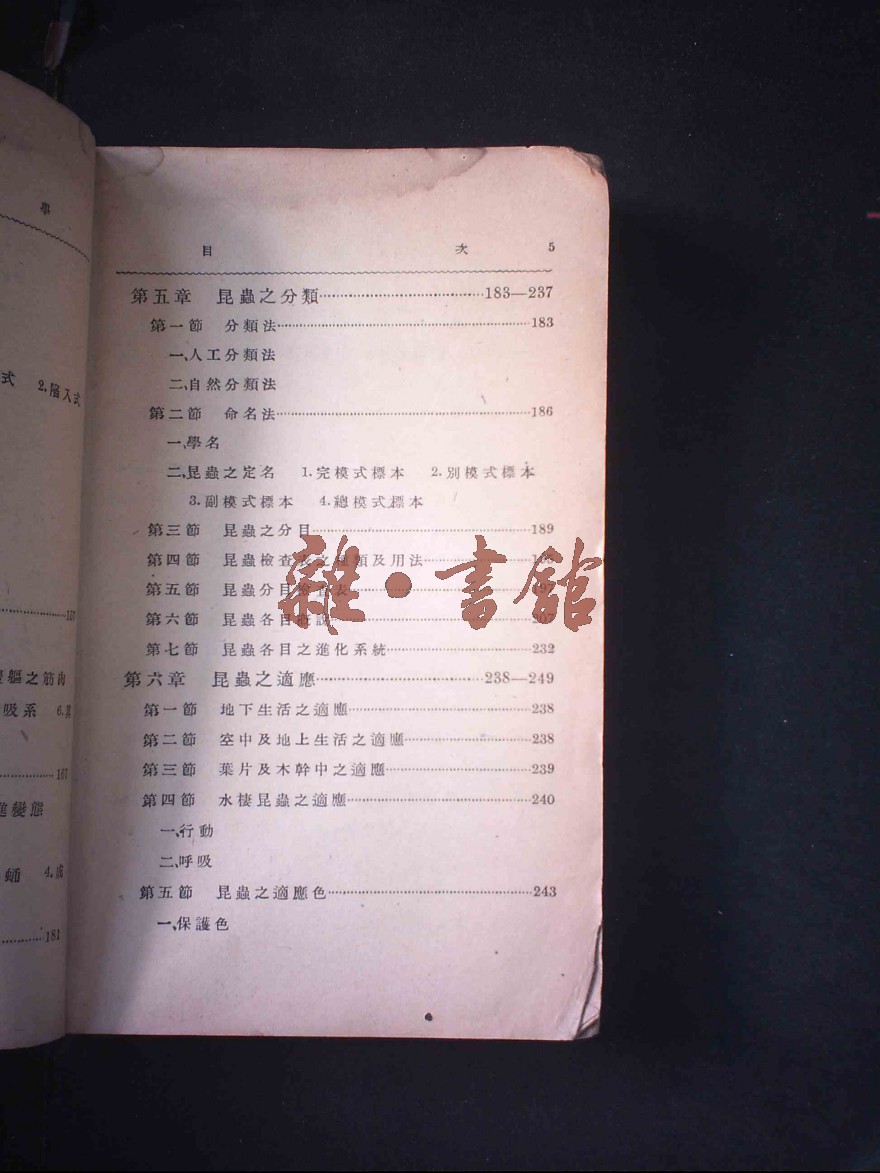 學
式 2.陷入式
157
軀之筋肉
吸系 6.
161
進變態
蛹 4.成
181
目 次 5
第五章 昆蟲之分類……183—237
第一節 分類法……183
一、人工分類法
二、自然分類法
第二節 命名法……186
一、學名
二、昆蟲之定名 1.完模式標本 2.別模式標本
3.副模式標本 4.總模式標本
第三節 昆蟲之分目……189
第四節 昆蟲檢查表之種類及用法……
第五節 昆蟲分目檢查表……
第六節 昆蟲各目概說……207
第七節 昆蟲各目之進化系統……232
第六章 昆蟲之適應……238—249
第一節 地下生活之適應……238
第二節 空中及地上生活之適應……238
第三節 葉片及木幹中之適應……239
第四節 水棲昆蟲之適應……240
一、行動
二、呼吸
第五節 昆蟲之適應色……243
一、保護色
雜·書館